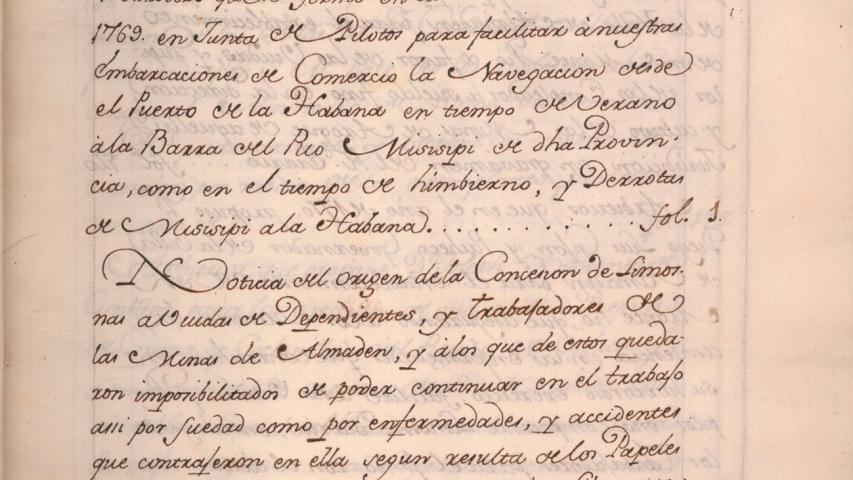 1769. en Junta de Pilotos para facilitar à nuestras
Embarcaciones de Comercio la Navegacion desde
el Puerto de la Habana en tiempo de Verano
à la Barra del Rio Misisipi de dha Provin-
cia, como en el tiempo de himbierno, y Derrotas
de Misisipi a la Habana. . . . . . . . . . . . . fol. 1.
Noticia del origen de la Concesion de Limos-
nas a Viudas de Dependientes, y trabajadores de
las Minas de Almaden, y à los que de estos queda-
ron imposibilitados de poder continuar en el trabajo
asi por su edad como por enfermedades, y accidentes
que contrajeron en ella segun resulta de los Papeles